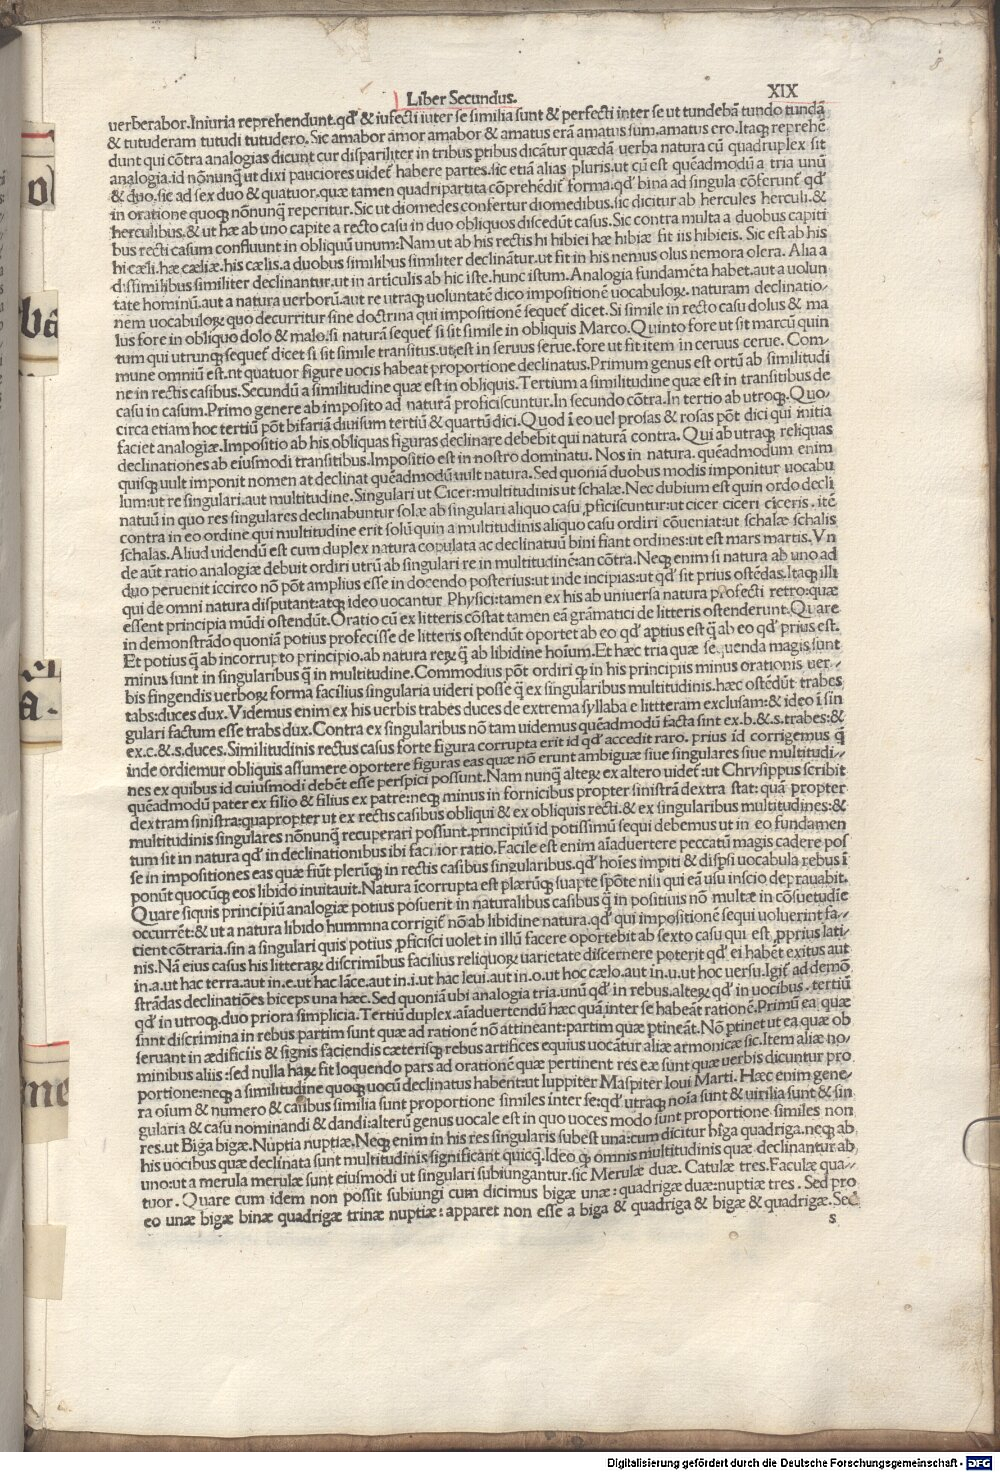 Liber Secundus. XIX
uerberabor. Iniuria reprehendunt. qđ & iufecti iuter se similia sunt & perfecti inter se ut tundebã tundo tundã
& tutuderam tutudi tutudero. Sic amabor amor amabor & amatus erã amatus sum. amatus ero. Itaqꝫ reprehẽ
dunt qui cõtra analogias dicunt cur dispariliter in tribus ptibus dicãtur quædã uerba natura cũ quadruplex sit
analogia. id nõnunqꝫ ut dixi pauciores uidet habere partes. sic etiã alias pluris. ut cũ est quẽadmodũ a tria unũ
& duo. sic ad sex duo & quatuor. quæ tamen quadripartita cõprehẽdit forma. qđ bina ad singula cõferunt qđ
in oratione quoqꝫ nõnunqꝫ reperitur. Sic ut diomedes confertur diomedibus. sic dicitur ab hercules herculi. &
herculibus. & ut hæ ab uno capite a recto casu in duo obliquos discedũt casus. Sic contra multa a duobus capiti
bus recti casum confluunt in obliquũ unum: Nam ut ab his rectis hi hibiei hæ hibiæ fit iis hibieis. Sic est ab his
hi cæli. hæ cæliæ. his cælis. a duobus similibus similiter declinãtur. ut fit in his nemus olus nemora olera. Alia a
dissimilibus similiter declinantur. ut in articulis ab hic iste. hunc istum. Analogia fundamẽta habet. aut a uolun
tate hominũ. aut a natura uerborũ. aut re utraqꝫ uoluntatẽ dico impositionẽ uocabuloꝝ. naturam declinatio/
nem uocabuloꝝ quo decurritur sine doctrina qui impositionẽ sequet dicet. Si simile in recto casu dolus & ma
lus fore in obliquo dolo & malo. si naturã sequet si sit simile in obliquis Marco. Quinto fore ut sit marcũ quin
tum qui utrunqꝫ sequet dicet si sit simile transitus. ut est in seruus serue. fore ut fit item in ceruus cerue. Com/
mune omniũ est. nt quatuor figure uocis habeat proportione declinatus. Primum genus est ortũ ab similitudi
ne in rectis casibus. Secundũ a similitudine quæ est in obliquis. Tertium a similitudine quæ est in transitibus de
casu in casum. Primo genere ab imposito ad naturã proficiscuntur. In secundo cõtra. In tertio ab utroqꝫ. Quo/
circa etiam hoc tertiũ põt bifariã diuisum tertiũ & quartũ dici. Quod i eo uel prosas & rosas põt dici qui initia
faciet analogiæ. Impositio ab his obliquas figuras declinare debebit qui naturã contra. Qui ab utraqꝫ reliquas
declinationes ab eiusmodi transitibus. Impositio est in nostro dominatu. Nos in natura. quẽadmodum enim
quisqꝫ uult imponit nomen at declinat quẽadmodũ uult natura. Sed quoniã duobus modis imponitur uocabu
lum: ut re singulari. aut multitudine. Singulari ut Cicer: multitudinis ut schalæ. Nec dubium est quin ordo decli
natuũ in quo res singulares declinabuntur solæ ab singulari aliquo casu ꝓficiscuntur: ut cicer ciceri ciceris. itẽ
contra in eo ordine qui multitudine erit solũ quin a multitudinis aliquo casu ordiri cõueniat: ut schalæ schalis
schalas. Aliud uidendũ est cum duplex natura copulata ac declinatuũ bini fiant ordines: ut est mars martis. Vn
de aũt ratio analogiæ debuit ordiri utrũ ab singulari re in multitudinẽ: an cõtra. Neqꝫ enim si natura ab uno ad
duo peruenit iccirco nõ põt amplius esse in docendo posterius: ut inde incipias: ut qđ sit prius ostẽdas. Itaqꝫ illi
qui de omni natura disputant: atqꝫ ideo uocantur Physici: tamen ex his ab uniuersa natura ꝓfecti retro: quæ
essent principia mũdi ostendũt. Oratio cũ ex litteris cõstat tamen eã grãmatici de litteris ostenderunt. Quare
in demonstrãdo quoniã potius profecisse de litteris ostendũt oportet ab eo qđ aptius est q̃ ab eo qđ prius est.
Et potius q̃ ab incorrupto principio. ab natura reꝝ q̃ ab libidine hoĩum. Et hæc tria quæ sequenda magis sunt
minus sunt in singularibus q̃ in multitudine. Commodius põt ordiri qꝫ in his principiis minus orationis uer./
bis fingendis uerboꝝ forma facilius singularia uideri posse q̃ ex singularibus multitudinis. hæc ostẽdũt trabes
tabs: duces dux. Videmus enim ex his uerbis trabes duces de extrema syllaba e littteram exclusam: & ideo ĩ sin
gulari factum esse trabs dux. Contra ex singularibus nõ tam uidemus quẽadmodũ facta sint ex. b. & .s. trabes: &
ex. c. & .s. duces. Similitudinis rectus casus forte figura corrupta erit id qđ accedit raro. prius id corrigemus q̃
inde ordiemur obliquis assumere oportere figuras eas quæ nõ erunt ambiguæ siue singulares siue multitudi/
nes ex quibus id cuiusmodi debẽt esse perspici possunt. Nam nunqꝫ alteꝝ ex altero uidet: ut Chrysippus scribit
quẽadmodũ pater ex filio & filius ex patre: neqꝫ minus in fornicibus propter sinistrã dextra stat: quã propter
dextram sinistra: quapropter ut ex rectis casibus obliqui & ex obliquis recti. & ex singularibus multitudines: &
multitudinis singulares nõnunqꝫ recuperari possunt. principiũ id potissimũ sequi debemus ut in eo fundamen
tum sit in natura qđ in declinationibus ibi facilior ratio. Facile est enim aĩaduertere peccatũ magis cadere pos
se in impositiones eas quæ fiũt plerũqꝫ in rectis casibus singularibus. qđ hoĩes impiti & dispsi uocabula rebus ĩ
ponũt quocũqꝫ eos libido inuitauit. Natura ĩcorrupta est plærũqꝫ suapte spõte nisi qui eã usu inscio deprauabit.
Quare siquis principiũ analogiæ potius posuerit in naturalibus casibus q̃ in positiuis nõ multæ in cõsuetudie
occurrẽt: & ut a natura libido hummna corrigit nõ ab libidine natura. qđ qui impositionẽ sequi uoluerint fa/
cient cõtraria. sin a singulari quis potius ꝓficisci uolet in illũ facere oportebit ab sexto casu qui est ꝓprius lati/
nis. Nã eius casus his litteraꝝ discrimibus facilius reliquoꝝ uarietate discernere poterit qđ ei habẽt exitus aut
in. a. ut hac terra. aut in. e. ut hac lãce. aut in. i. ut hac leui. aut in. o. ut hoc cælo. aut in. u. ut hoc uersu. Igit ad demõ
strãdas declinatiões biceps una hæc. Sed quoniã ubi analogia tria. unũ qđ in rebus. alteꝝ qđ in uocibus. tertiũ
qđ in utroqꝫ. duo priora simplicia. Tertiũ duplex. aĩaduertendũ hæc quã inter se habeãt rationẽ. Primũ ea quæ
snnt discrimina in rebus partim sunt quæ ad rationẽ nõ attineant: partim quæ ptineãt. Nõ ptinet ut ea quæ ob
seruant in ædificiis & signis faciendis cæterisqꝫ rebus artifices equius uocãtur aliæ armonicæ sic. Item aliæ no/
minibus aliis: sed nulla haꝝ fit loquendo pars ad orationẽ quæ pertinent res eæ sunt quæ uerbis dicuntur pro
portione: neqꝫ a similitudine quoqꝫ uocũ declinatus habent: ut Iuppiter Maspiter Ioui Marti. Hæc enim gene/
ra oĩum & numero & casibus similia sunt proportione similes inter se: qđ utraqꝫ noĩa sunt & uirilia sunt & sin
gularia & casu nominandi & dandi: alterũ genus uocale est in quo uoces modo sunt proportione similes non
res. ut Biga bigæ. Nuptia nuptiæ. Neqꝫ enim in his res singularis subest una: cum dicitur biga quadriga. neqꝫ ab
his uocibus quæ declinata sunt multitudinis significant quicqꝫ. Ideo qꝫ omnis multitudinis quæ declinantur ab
uno: ut a merula merulæ sunt eiusmodi ut singulari subiungantur. sic Merulæ duæ. Catulæ tres. Faculæ qua/
tuor. Quare cum idem non possit subiungi cum dicimus bigæ unæ: quadrigæ duæ: nuptiæ tres. Sed pro
eo unæ bigæ binæ quadrigæ trinæ nuptiæ: apparet non esse a biga & quadriga & bigæ & quadrigæ. Sed
s
Digitalisierung gefördert durch die Deutsche Forschungsgemeinschaft - DFG